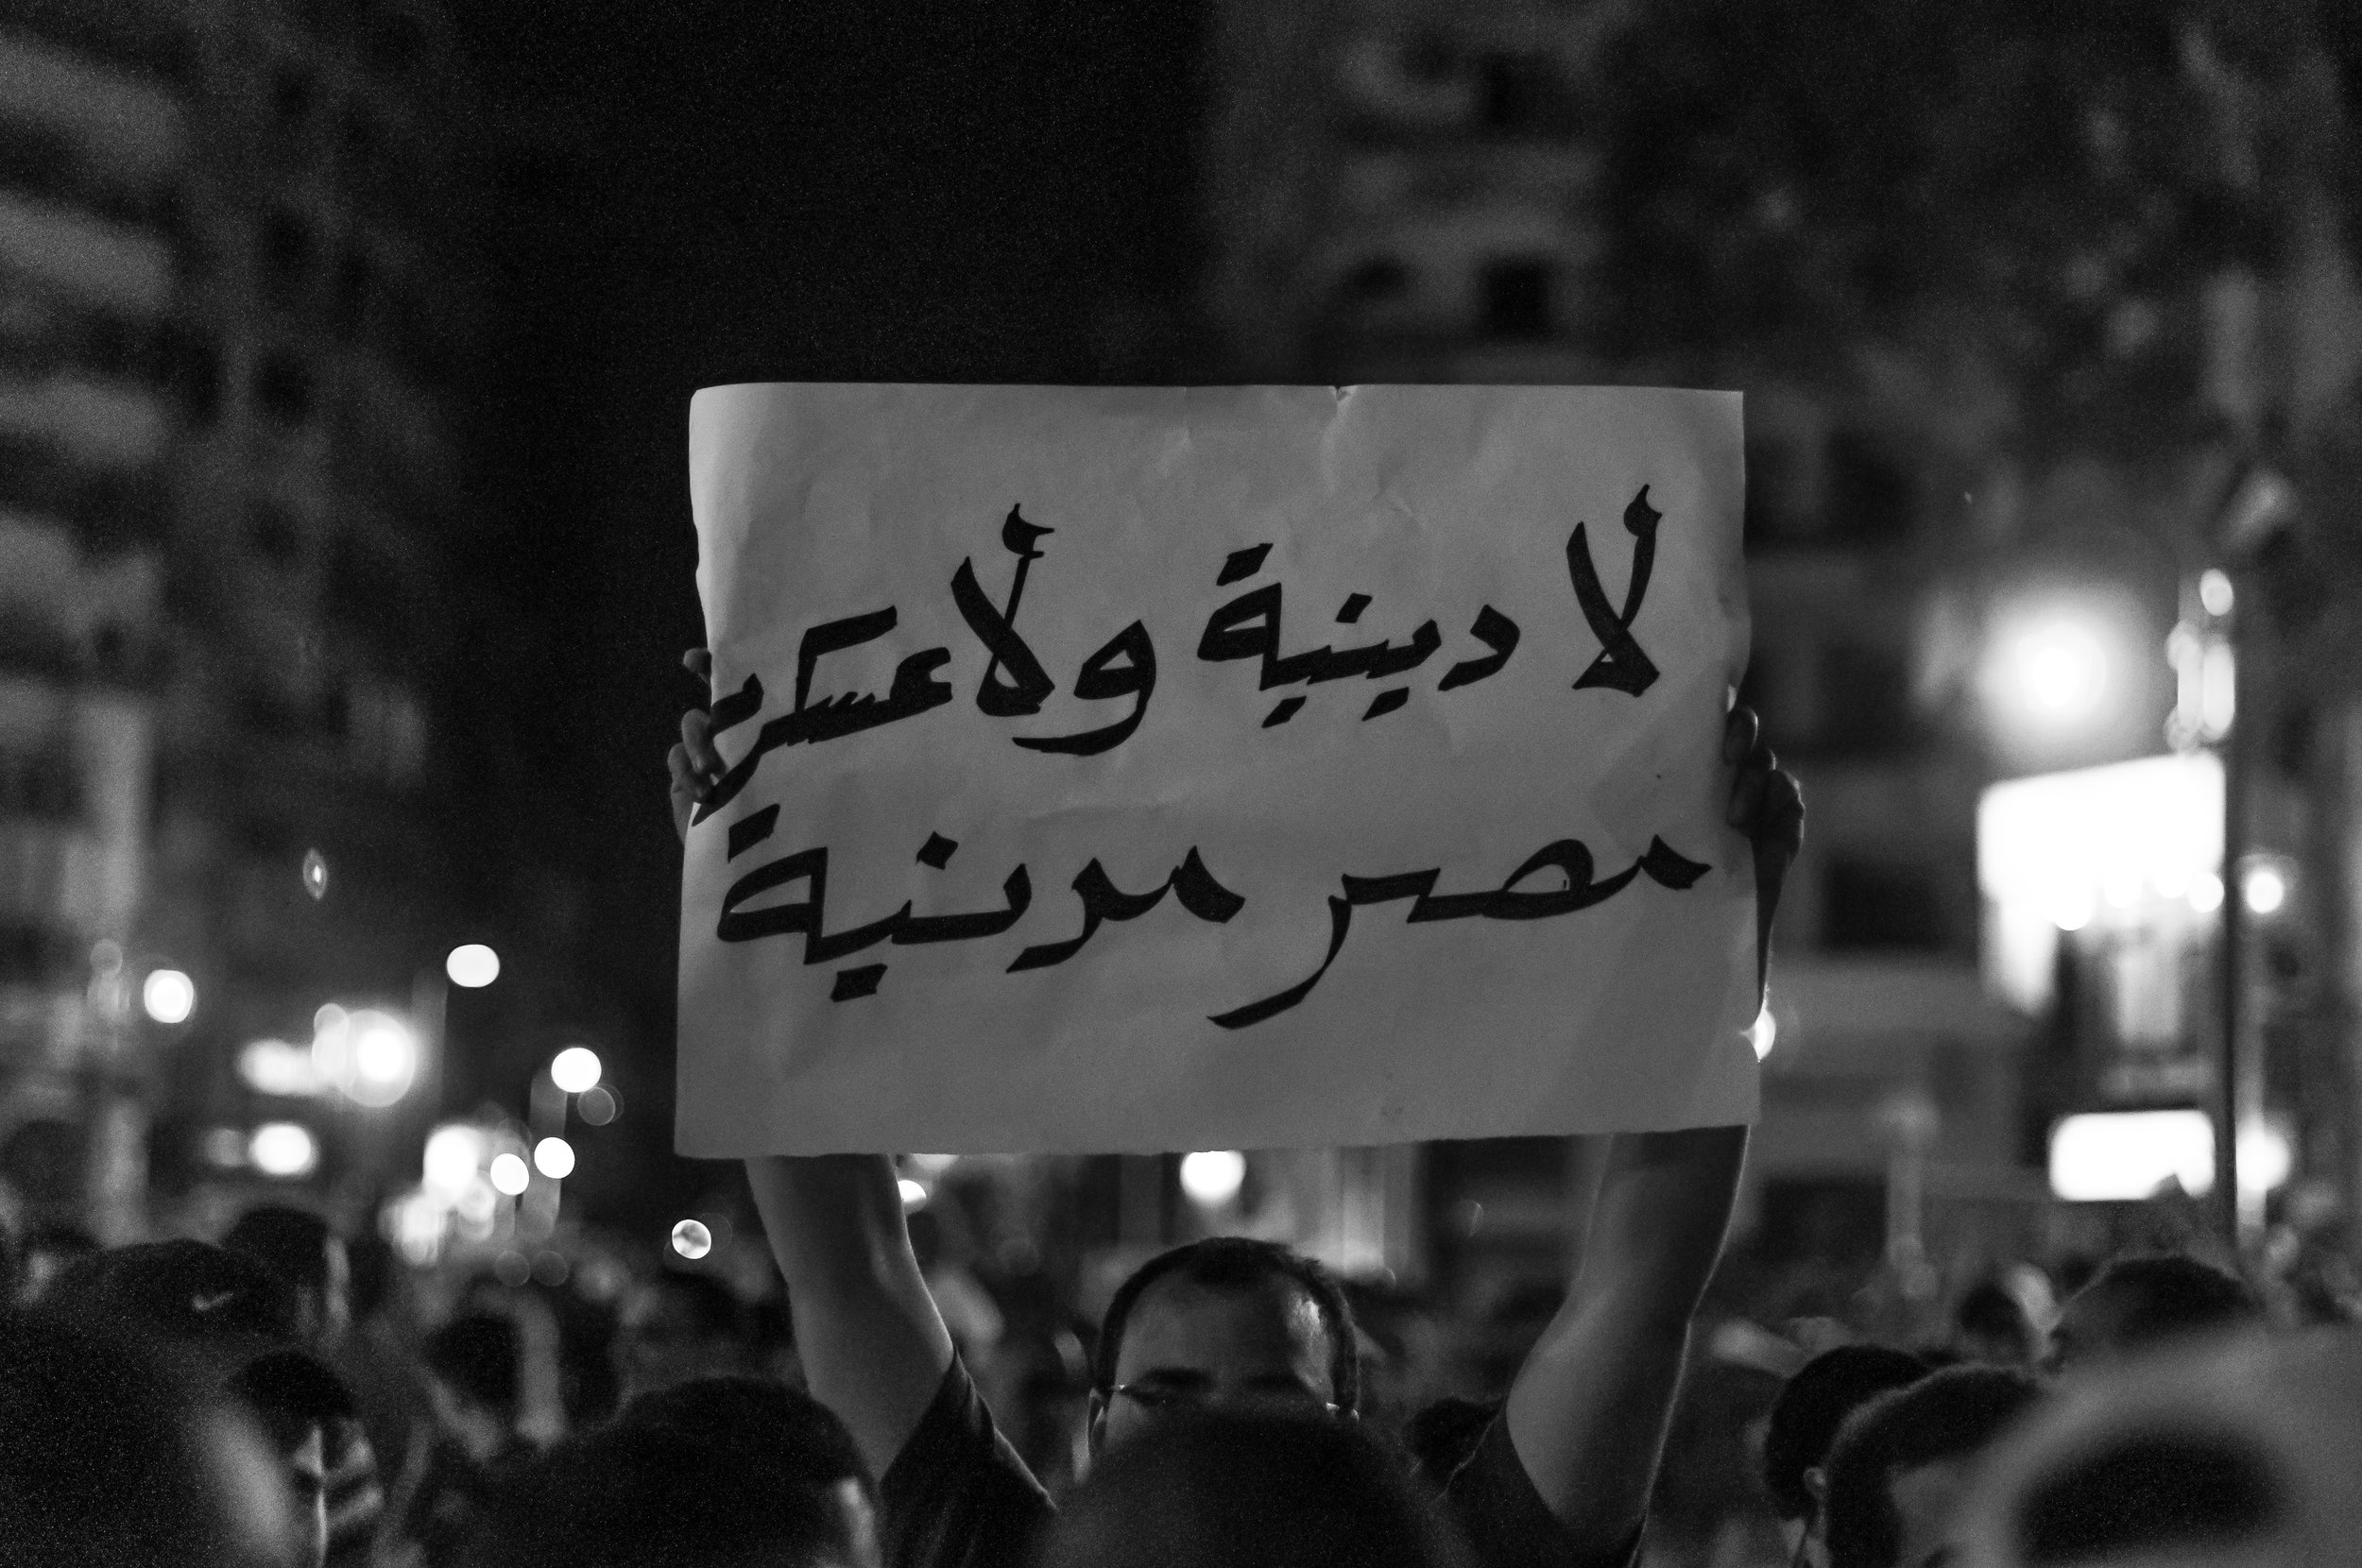 لا دينية ولا عسكرية
مصر مدنية